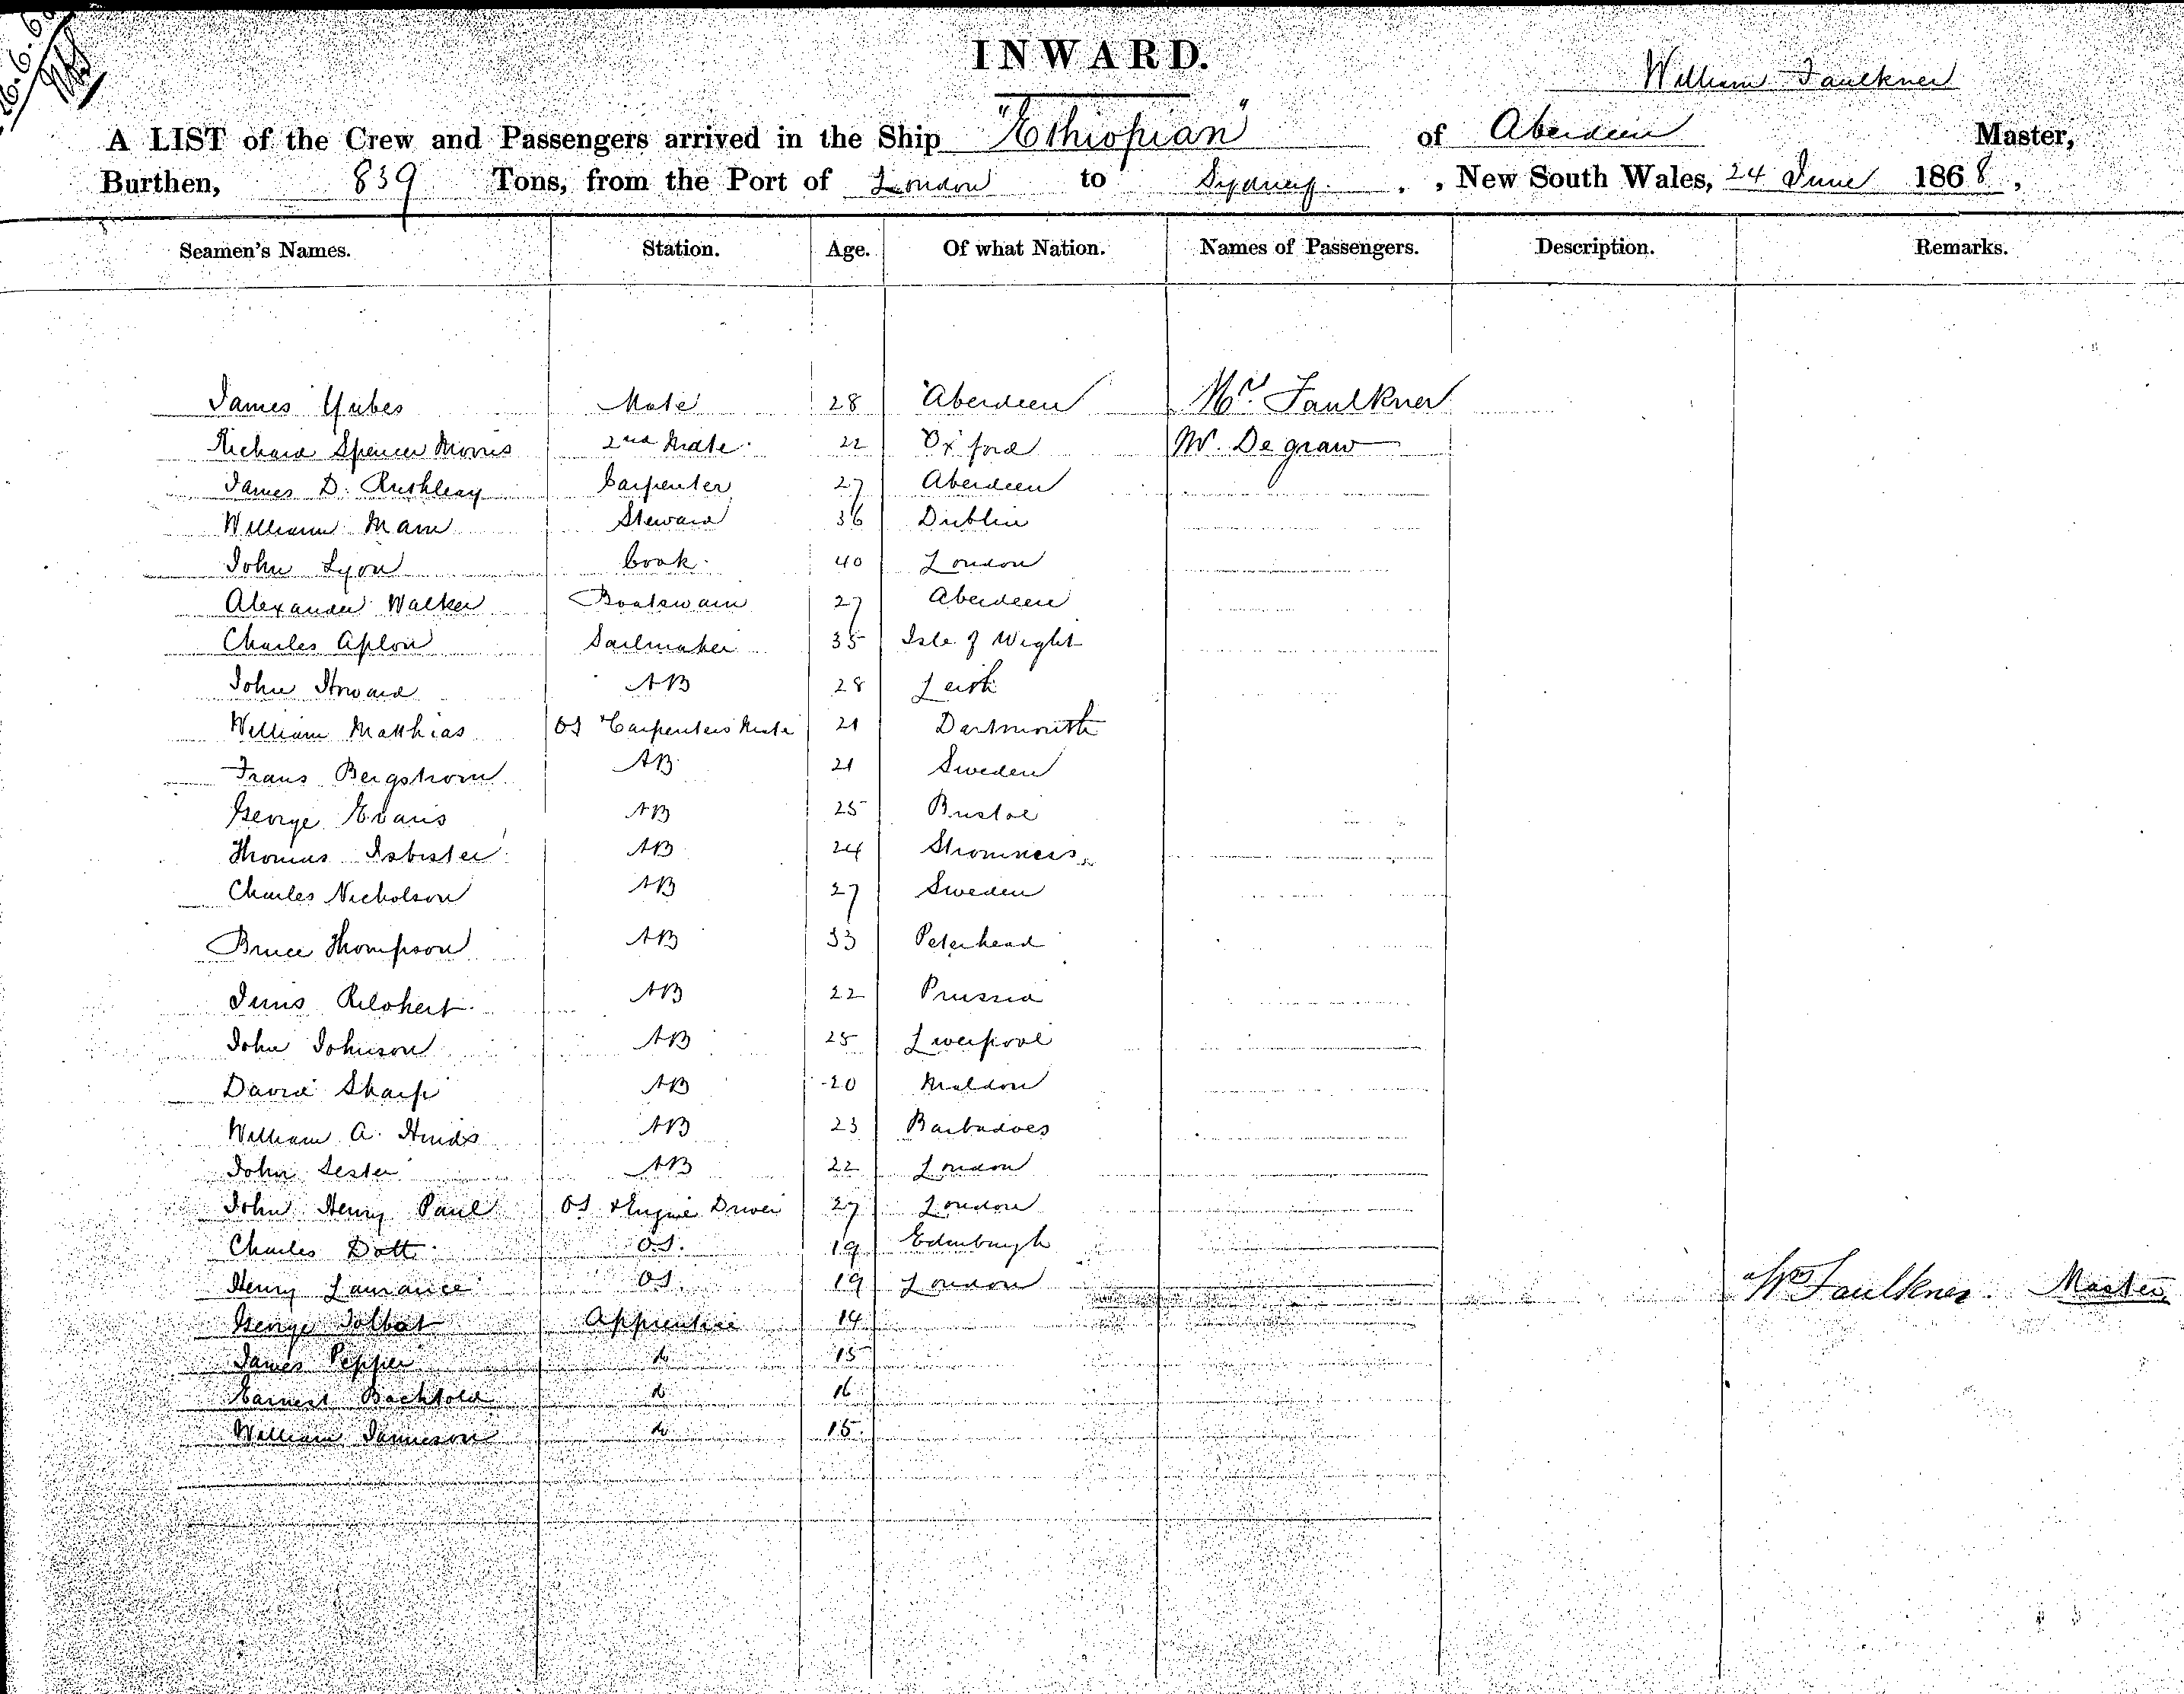 26.6.6
INWARD.
William Faulkner
A LIST of the Crew and Passengers arrived in the Ship "Ethiopian" of Aberdeen Master,
Burthen, 839 Tons, from the Port of London to Sydney. , New South Wales, 24 June 1868,
Seamen's Names. Station. Age. Of what Nation. Names of Passengers. Description. Remarks.
James Yubes Mate 28 Aberdeen Mrs. Faulkner
Richard Spencer Morris 2nd Mate. 22 Oxford Mr. Degraw
James D. Carpenter 27 Aberdeen
William Mann Steward 36 Dublin
John Lyon Cook. 40 London
Alexander Walker Boatswain 27 Aberdeen
Charles Aplon Sailmaker 35 Isle of Wight
John Howard AB 28 Leith
William Matthias OS Carpenters Mate 21 Dartmouth
Frans Bergstrom AB 21 Sweden
George Evans AB 25 Bristol
Thomas Isbister AB 24 Stromness
Charles Nicholson AB 27 Sweden
Bruce Thompson AB 33 Peterhead
AB 22 Prussia
John Johnson AB 25 Liverpool
David Sharp AB 20 Maldon
William A. Hinds AB 23 Barbadoes
John Lester AB 22 London
John Henry Paul OS & Engine Driver 27 London
Charles Dott OS. 19 Edinburgh
Henry Lawrance OS. 19 London
Wm Faulkner. Master
George Tolbat Apprentice 14
James Pepper do 15
Earnest Bachtold do 16
William Jamieson do 15.